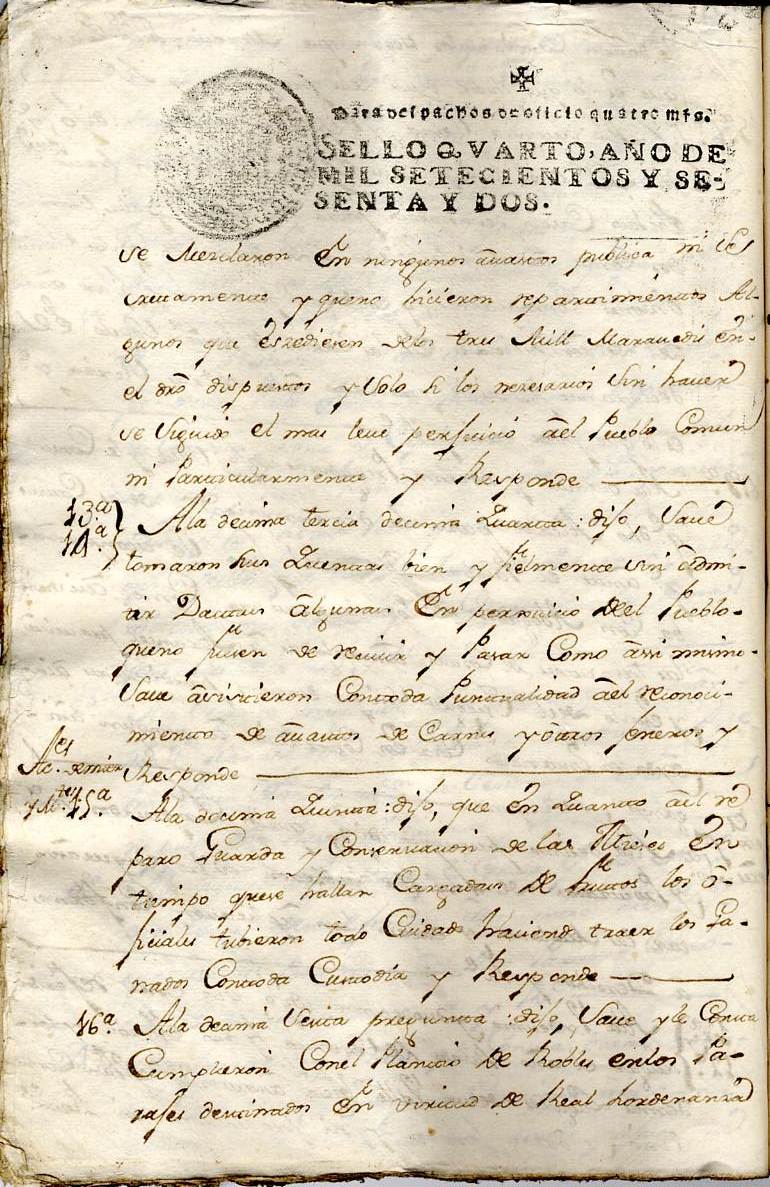 Para despachos de oficio quatro mrs.
SELLO QVARTO, AÑO DE
MIL SETECIENTOS Y SE-
SENTA Y DOS.
se Mezclaron En ningunos avastos publica ni se
cretamente y queno hicieron repartimientos Al-
gunos que Eszediesen delos tres Mill Maravedis En-
el dro dispuestos y Solo si los nezesarios Sin haver
se Seguido el mas leve perjuicio ael Pueblo Comun
ni Particularmente y Responde
13.a
14.a
Ala decima tercia decima Quartta : dijo, Save
tomaron sus Quentas bien y fielmente sin admi-
tir Dattas algunas En perjuicio del Pueblo-
queno fuesen de recivir y Pasar Como assi mismo-
Save asisttieron Contoda Puntualidad ael reconoci-
miento de avastos de Carnes y ottros feneros y
Responde
15.a
Ala decima Quintta : dijo, que En Quanto ael re
paro Guarda y Conservacion de las Mieses En
tiempo quese hallan Cargadas De fruttos los o-
ficiales tubieron todo Cuidado haciend traer los Ga-
nados Contoda Custodia y Responde
16.a
Ala decima Sexta pregunta : dijo, Save y le Consta
Cumplieron Conel Plantio de Robles enlos Pa-
rajes destinados En virttud de Real hordenanza